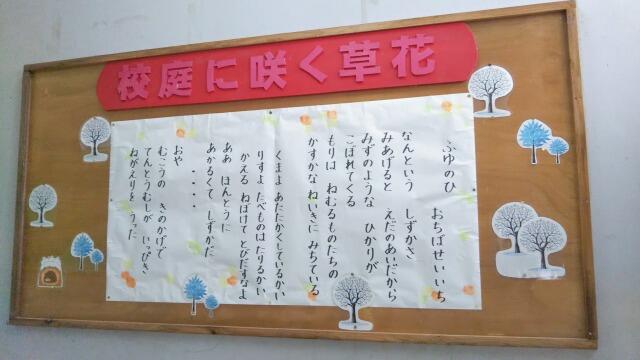 校庭に咲く草花
ふゆのひ　おちばせいいち
なんという　しずかさ
みあげると　えだのあいだから
みずのような　ひかりが
こぼれてくる
もりは　ねむるものたちの
かすかな　ねいきに　みちている
くまよ　あたたかくしているかい
りすよ　たべものはたりるかい
かえる　ねぼけて　とびだすなよ
ああ　ほんとうに
あかるくて　しずかだ
・・・・
おや
むこうの　きのかげで
てんとうむしが　いっぴき
ねがえりを　うった